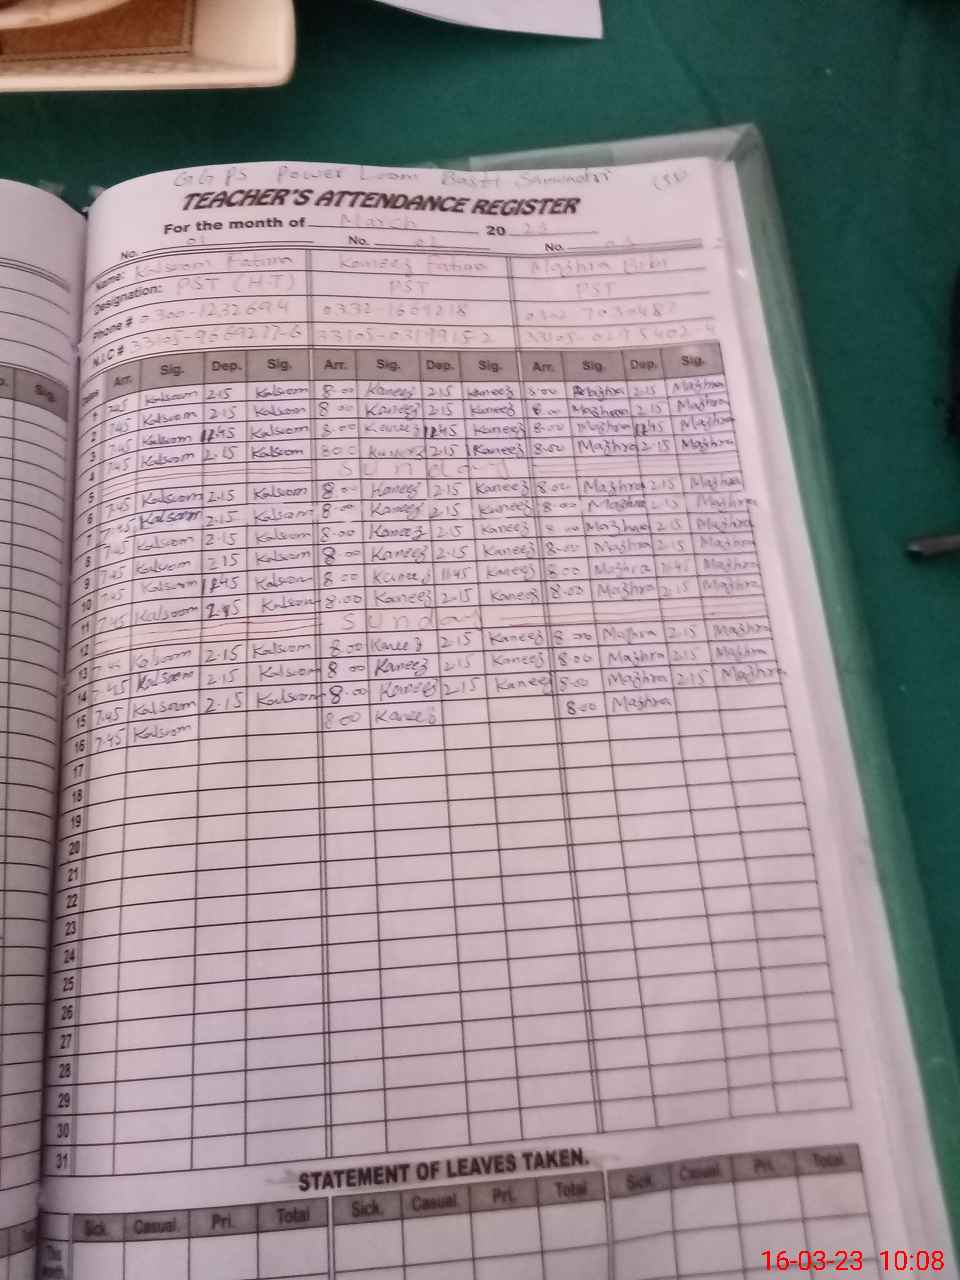 GGPS Power Loom Basti
TEACHER'S ATTENDANCE REGISTER
For the month of March 20 23
No. 01 No. 02 No. 03
Name: Kalsoom Fatima Kaneez Fatima Mazhra Bibi
Designation: PST (H-T) PST PST
Phone # 0300-1232694 0332-1609218
N.I.C #
Dates Arr. Sig. Dep. Sig. Arr. Sig. Dep. Sig. Arr. Sig. Dep. Sig.
1 7.45 Kalsoom 2.15 Kalsoom 8.00 Kaneez 2.15 Kaneez 8.00 Mazhra 2.15 Mazhra
2 7.45 Kalsoom 2.15 Kalsoom 8.00 Kaneez 2.15 Kaneez 8.00 Mazhra 2.15 Mazhra
3 7.45 Kalsoom 11.45 Kalsoom 8.00 Kaneez 11.45 Kaneez 8.00 Mazhra 11.45 Mazhra
4 7.45 Kalsoom 2.15 Kalsoom 8.00 Kaneez 2.15 Kaneez 8.00 Mazhra 2.15 Mazhra
5 Sunday
6 7.45 Kalsoom 2.15 Kalsoom 8.00 Kaneez 2.15 Kaneez 8.00 Mazhra 2.15 Mazhra
7 7.45 Kalsoom 2.15 Kalsoom 8.00 Kaneez 2.15 Kaneez 8.00 Mazhra 2.15 Mazhra
8 7.45 Kalsoom 2.15 Kalsoom 8.00 Kaneez 2.15 Kaneez 8.00 Mazhra 2.15 Mazhra
9 7.45 Kalsoom 2.15 Kalsoom 8.00 Kaneez 2.15 Kaneez 8.00 Mazhra 2.15 Mazhra
10 7.45 Kalsoom 11.45 Kalsoom 8.00 Kaneez 11.45 Kaneez 8.00 Mazhra 11.45 Mazhra
11 7.45 Kalsoom Kalsoom 8.00 Kaneez 2.15 Kaneez 8.00 Mazhra 2.15 Mazhra
12 Sunday
13 7.45 Kalsoom 2.15 Kalsoom 8.00 Kaneez 2.15 Kaneez 8.00 Mazhra 2.15 Mazhra
14 7.45 Kalsoom 2.15 Kalsoom 8.00 Kaneez 2.15 Kaneez 8.00 Mazhra 2.15 Mazhra
15 7.45 Kalsoom 2.15 Kalsoom 8.00 Kaneez 2.15 Kaneez 8.00 Mazhra 2.15 Mazhra
16 7.45 Kalsoom 8.00 Kaneez 8.00 Mazhra
17
18
19
20
21
22
23
24
25
26
27
28
29
30
31
STATEMENT OF LEAVES TAKEN.
Sick. Casual. Pri. Total Sick. Casual. Pri. Total Sick. Casual. Pri. Total
This
16-03-23 10:08